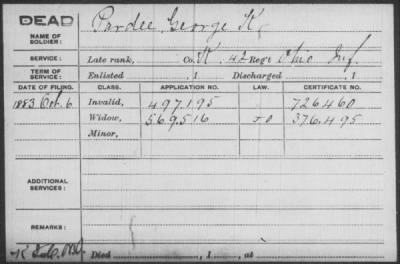 DEAD
NAME OF SOLDIER: Pardee, George K.
SERVICE: Late rank, Co. K, 42 Reg't Ohio Inf.
TERM OF SERVICE: Enlisted , 1 Discharged , 1
DATE OF FILING. CLASS. APPLICATION NO. LAW. CERTIFICATE NO.
1883 Oct. 6 Invalid, 497.195 726460
Widow, 569.516 376.495
Minor,
ADDITIONAL SERVICES:
REMARKS:
Died , 1 , at